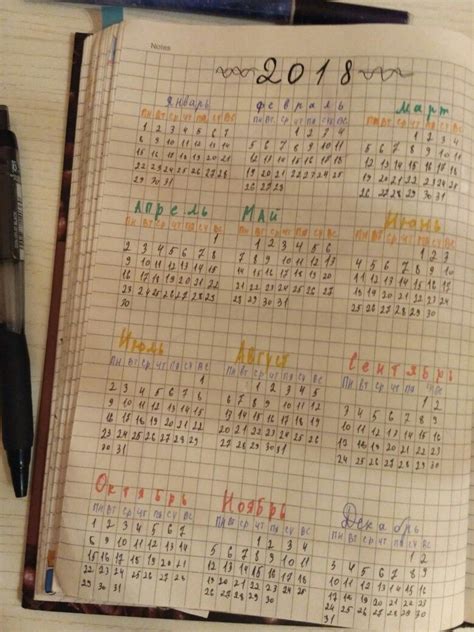 Notes
2018
Январь
ПН ВТ СР ЧТ ПЯ СУ ВС
1 2 3 4 5 6 7
8 9 10 11 12 13 14
15 16 17 18 19 20 21
22 23 24 25 26 27 28
29 30 31
Февраль
ПН ВТ СР ЧТ ПЯ СУ ВС
1 2 3 4
5 6 7 8 9 10 11
12 13 14 15 16 17 18
19 20 21 22 23 24 25
26 27 28
Март
ПН ВТ СР ЧТ ПЯ СУ ВС
1 2 3 4
5 6 7 8 9 10 11
12 13 14 15 16 17 18
19 20 21 22 23 24 25
26 27 28 29 30 31
Апрель
ПН ВТ СР ЧТ ПЯ СУ ВС
1
2 3 4 5 6 7 8
9 10 11 12 13 14 15
16 17 18 19 20 21 22
23 24 25 26 27 28 29
30
Май
ПН ВТ СР ЧТ ПЯ СУ ВС
1 2 3 4 5 6
7 8 9 10 11 12 13
14 15 16 17 18 19 20
21 22 23 24 25 26 27
28 29 30 31
Июнь
ПН ВТ СР ЧТ ПЯ СУ ВС
1 2 3
4 5 6 7 8 9 10
11 12 13 14 15 16 17
18 19 20 21 22 23 24
25 26 27 28 29 30
Июль
ПН ВТ СР ЧТ ПЯ СУ ВС
1
2 3 4 5 6 7 8
9 10 11 12 13 14 15
16 17 18 19 20 21 22
23 24 25 26 27 28 29
30 31
Август
ПН ВТ СР ЧТ ПЯ СУ ВС
1 2 3 4 5
6 7 8 9 10 11 12
13 14 15 16 17 18 19
20 21 22 23 24 25 26
27 28 29 30 31
Сентябрь
ПН ВТ СР ЧТ ПЯ СУ ВС
1 2
3 4 5 6 7 8 9
10 11 12 13 14 15 16
17 18 19 20 21 22 23
24 25 26 27 28 29 30
Октябрь
ПН ВТ СР ЧТ ПЯ СУ ВС
1 2 3 4 5 6 7
8 9 10 11 12 13 14
15 16 17 18 19 20 21
22 23 24 25 26 27 28
29 30 31
Ноябрь
ПН ВТ СР ЧТ ПЯ СУ ВС
1 2 3 4
5 6 7 8 9 10 11
12 13 14 15 16 17 18
19 20 21 22 23 24 25
26 27 28 29 30
Декабрь
ПН ВТ СР ЧТ ПЯ СУ ВС
1 2
3 4 5 6 7 8 9
10 11 12 13 14 15 16
17 18 19 20 21 22 23
24 25 26 27 28 29 30
31